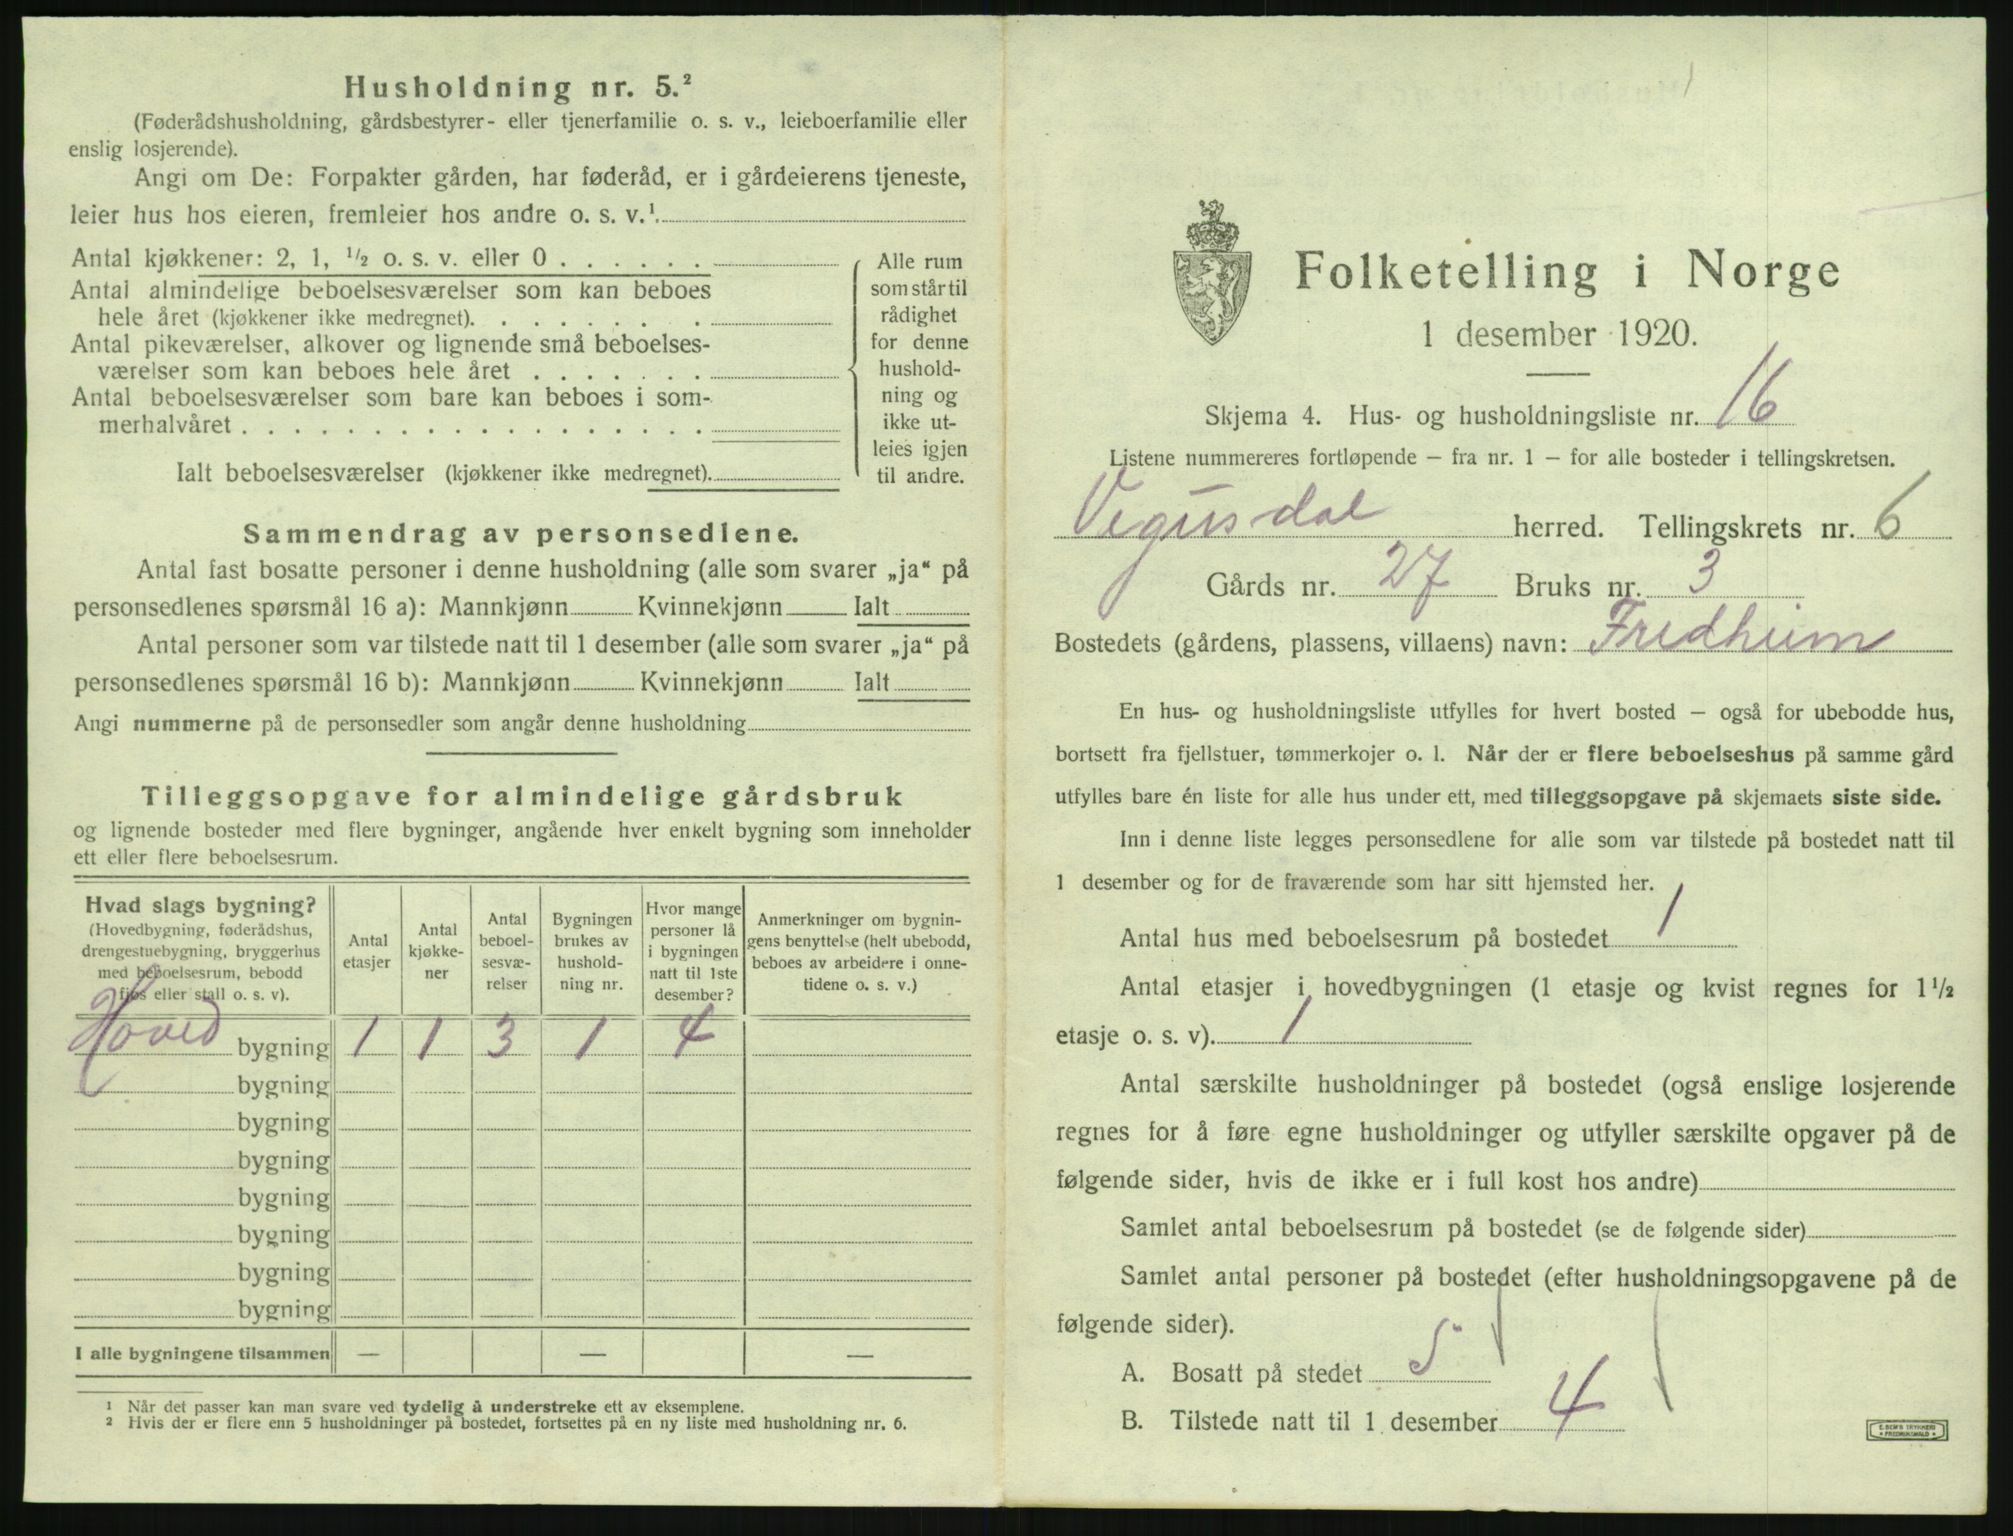 Husholdning nr. 5.²
(Føderådshusholdning, gårdsbestyrer- eller tjenerfamilie o. s. v., leieboerfamilie eller
enslig losjerende).
Angi om De: Forpakter gården, har føderåd, er i gårdeierens tjeneste,
leier hus hos eieren, fremleier hos andre o. s. v.¹
Antal kjøkkener: 2, 1, ½ o. s. v. eller 0
Antal almindelige beboelsesværelser som kan beboes
hele året (kjøkkener ikke medregnet).
Antal pikeværelser, alkover og lignende små beboelses-
værelser som kan beboes hele året
Antal beboelsesværelser som bare kan beboes i som-
merhalvåret
Ialt beboelsesværelser (kjøkkener ikke medregnet).
Alle rum
som står til
rådighet
for denne
hushold-
ning og
ikke ut-
leies igjen
til andre.
Sammendrag av personsedlene.
Antal fast bosatte personer i denne husholdning (alle som svarer „ja“ på
personsedlenes spørsmål 16 a): Mannkjønn Kvinnekjønn Ialt
Antal personer som var tilstede natt til 1 desember (alle som svarer „ja“ på
personsedlenes spørsmål 16 b): Mannkjønn Kvinnekjønn Ialt
Angi nummerne på de personsedler som angår denne husholdning
Tilleggsopgave for almindelige gårdsbruk
og lignende bosteder med flere bygninger, angående hver enkelt bygning som inneholder
ett eller flere beboelsesrum.
Hvad slags bygning?
(Hovedbygning, føderådshus,
drengestuebygning, bryggerhus
med beboelsesrum, bebodd
fjøs eller stall o. s. v).
Antal
etasjer
Antal
kjøkke-
ner
Antal
beboel-
sesvæ-
relser
Bygningen
brukes av
hushold-
ning nr.
Hvor mange
personer lå
i bygningen
natt til 1ste
desember?
Anmerkninger om bygnin-
gens benyttelse (helt ubebodd,
beboes av arbeidere i onne-
tidene o. s. v.)
Hoved bygning 1 1 3 1 4
bygning
bygning
bygning
bygning
bygning
bygning
bygning
I alle bygningene tilsammen — — —
¹ Når det passer kan man svare ved tydelig å understreke ett av eksemplene.
² Hvis der er flere enn 5 husholdninger på bostedet, fortsettes på en ny liste med husholdning nr. 6.
Folketelling i Norge
1 desember 1920.
Skjema 4. Hus- og husholdningsliste nr. 16
Listene nummereres fortløpende – fra nr. 1 – for alle bosteder i tellingskretsen.
Vegusdal herred. Tellingskrets nr. 6
Gårds nr. 27 Bruks nr. 3
Bostedets (gårdens, plassens, villaens) navn: Fredheim
En hus- og husholdningsliste utfylles for hvert bosted – også for ubebodde hus,
bortsett fra fjellstuer, tømmerkojer o. l. Når der er flere beboelseshus på samme gård
utfylles bare én liste for alle hus under ett, med tilleggsopgave på skjemaets siste side.
Inn i denne liste legges personsedlene for alle som var tilstede på bostedet natt til
1 desember og for de fraværende som har sitt hjemsted her.
Antal hus med beboelsesrum på bostedet 1
Antal etasjer i hovedbygningen (1 etasje og kvist regnes for 1½
etasje o. s. v). 1
Antal særskilte husholdninger på bostedet (også enslige losjerende
regnes for å føre egne husholdninger og utfyller særskilte opgaver på de
følgende sider, hvis de ikke er i full kost hos andre)
Samlet antal beboelsesrum på bostedet (se de følgende sider)
Samlet antal personer på bostedet (efter husholdningsopgavene på de
følgende sider).
A. Bosatt på stedet 5
B. Tilstede natt til 1 desember 4